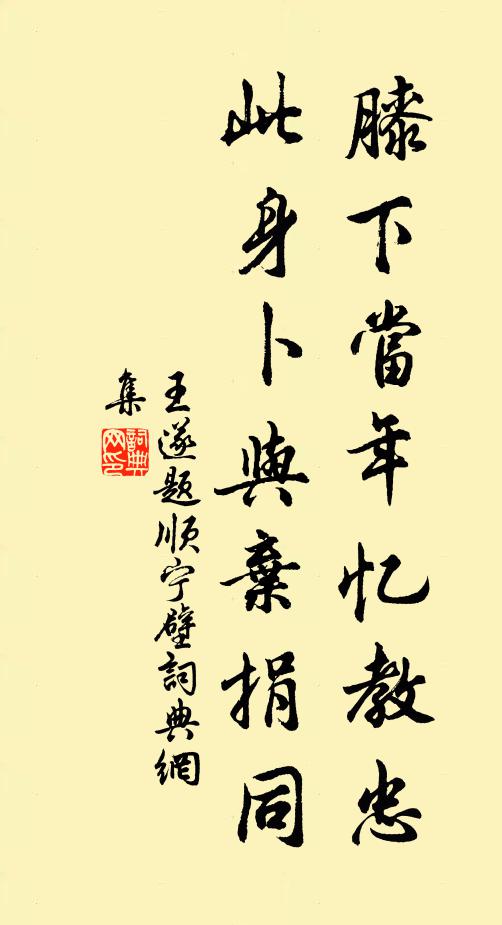 膝下當年忆教忠
此身卜與棄捐同
王遂题顺宁壁詞典網
集
詞典网印